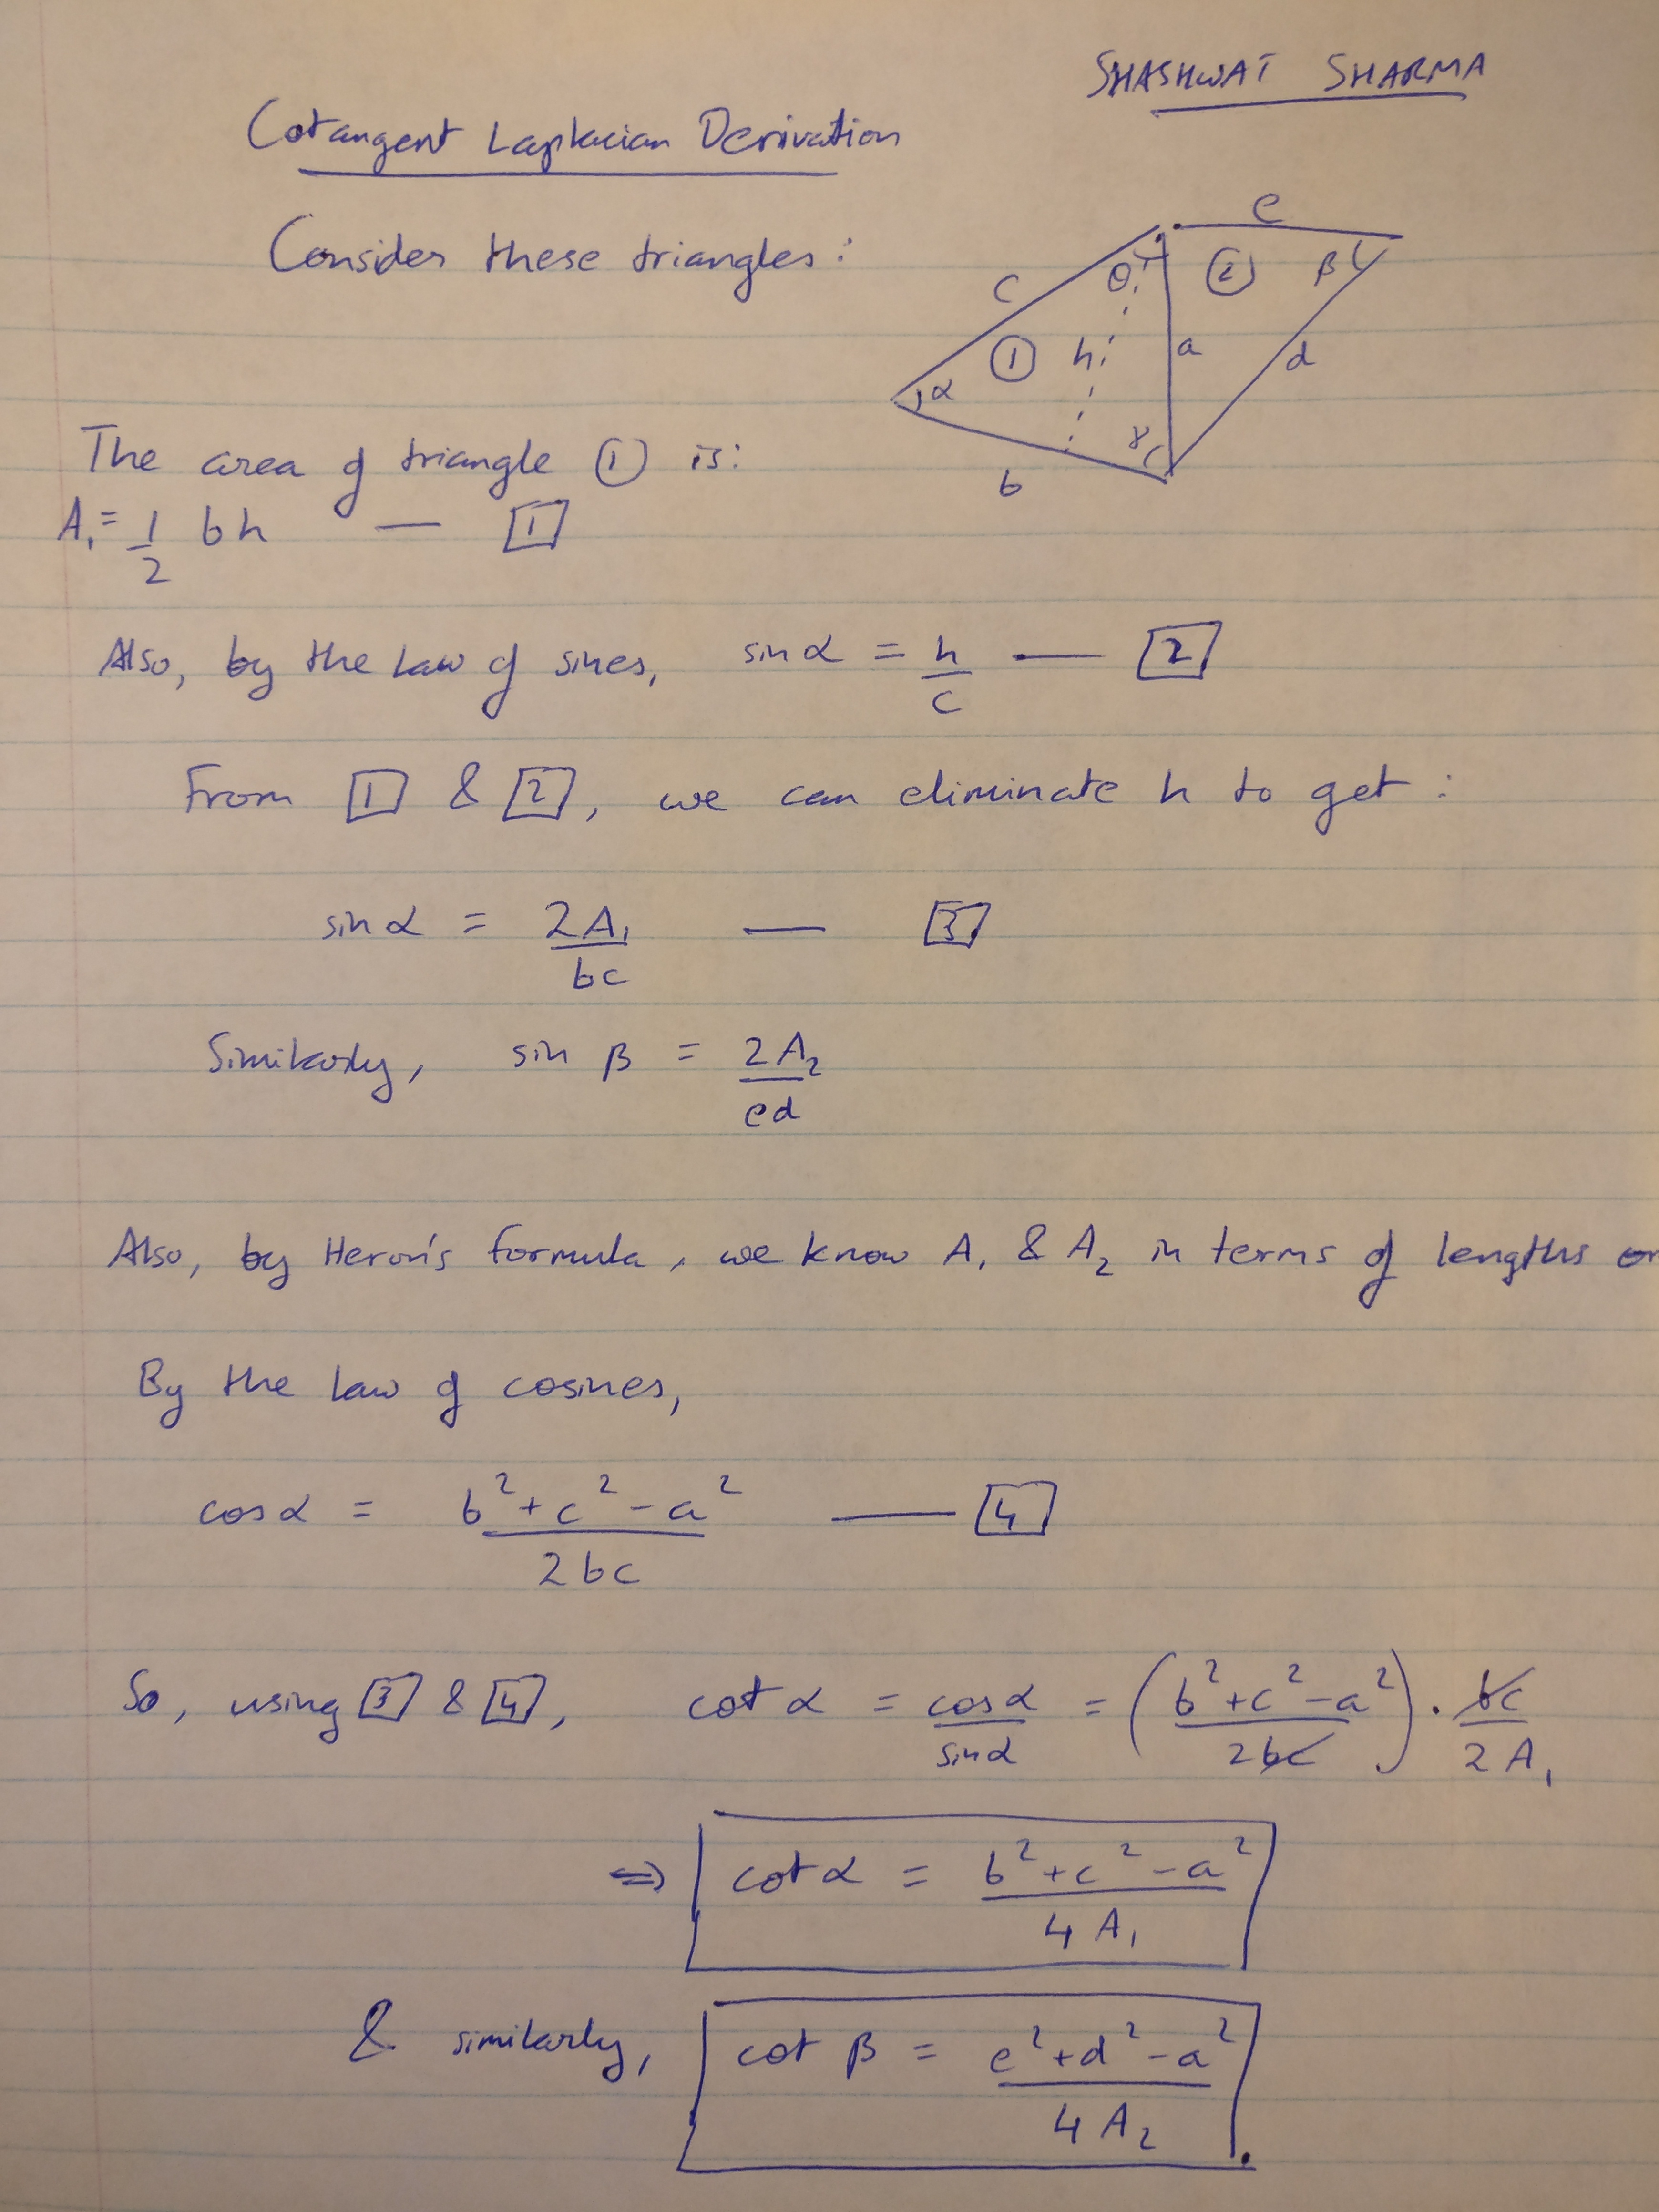 SHASHWAT SHARMA
Cotangent Laplacian Derivation
Consider these triangles:
e
c θ ② β
① h a d
α
γ
b
The area of triangle ① is:
A₁ = 1/2 bh — [1]
Also, by the law of sines, sin α = h/c — [2]
From [1] & [2], we can eliminate h to get:
sin α = 2A₁/bc — [3]
Similarly, sin β = 2A₂/ed
Also, by Heron's formula, we know A₁ & A₂ in terms of lengths
By the law of cosines,
cos α = (b²+c²-a²)/2bc — [4]
So, using [3] & [4], cot α = cos α/sin α = ((b²+c²-a²)/2bc) · bc/2A₁
⇒ cot α = (b²+c²-a²)/4A₁
& similarly, cot β = (e²+d²-a²)/4A₂.